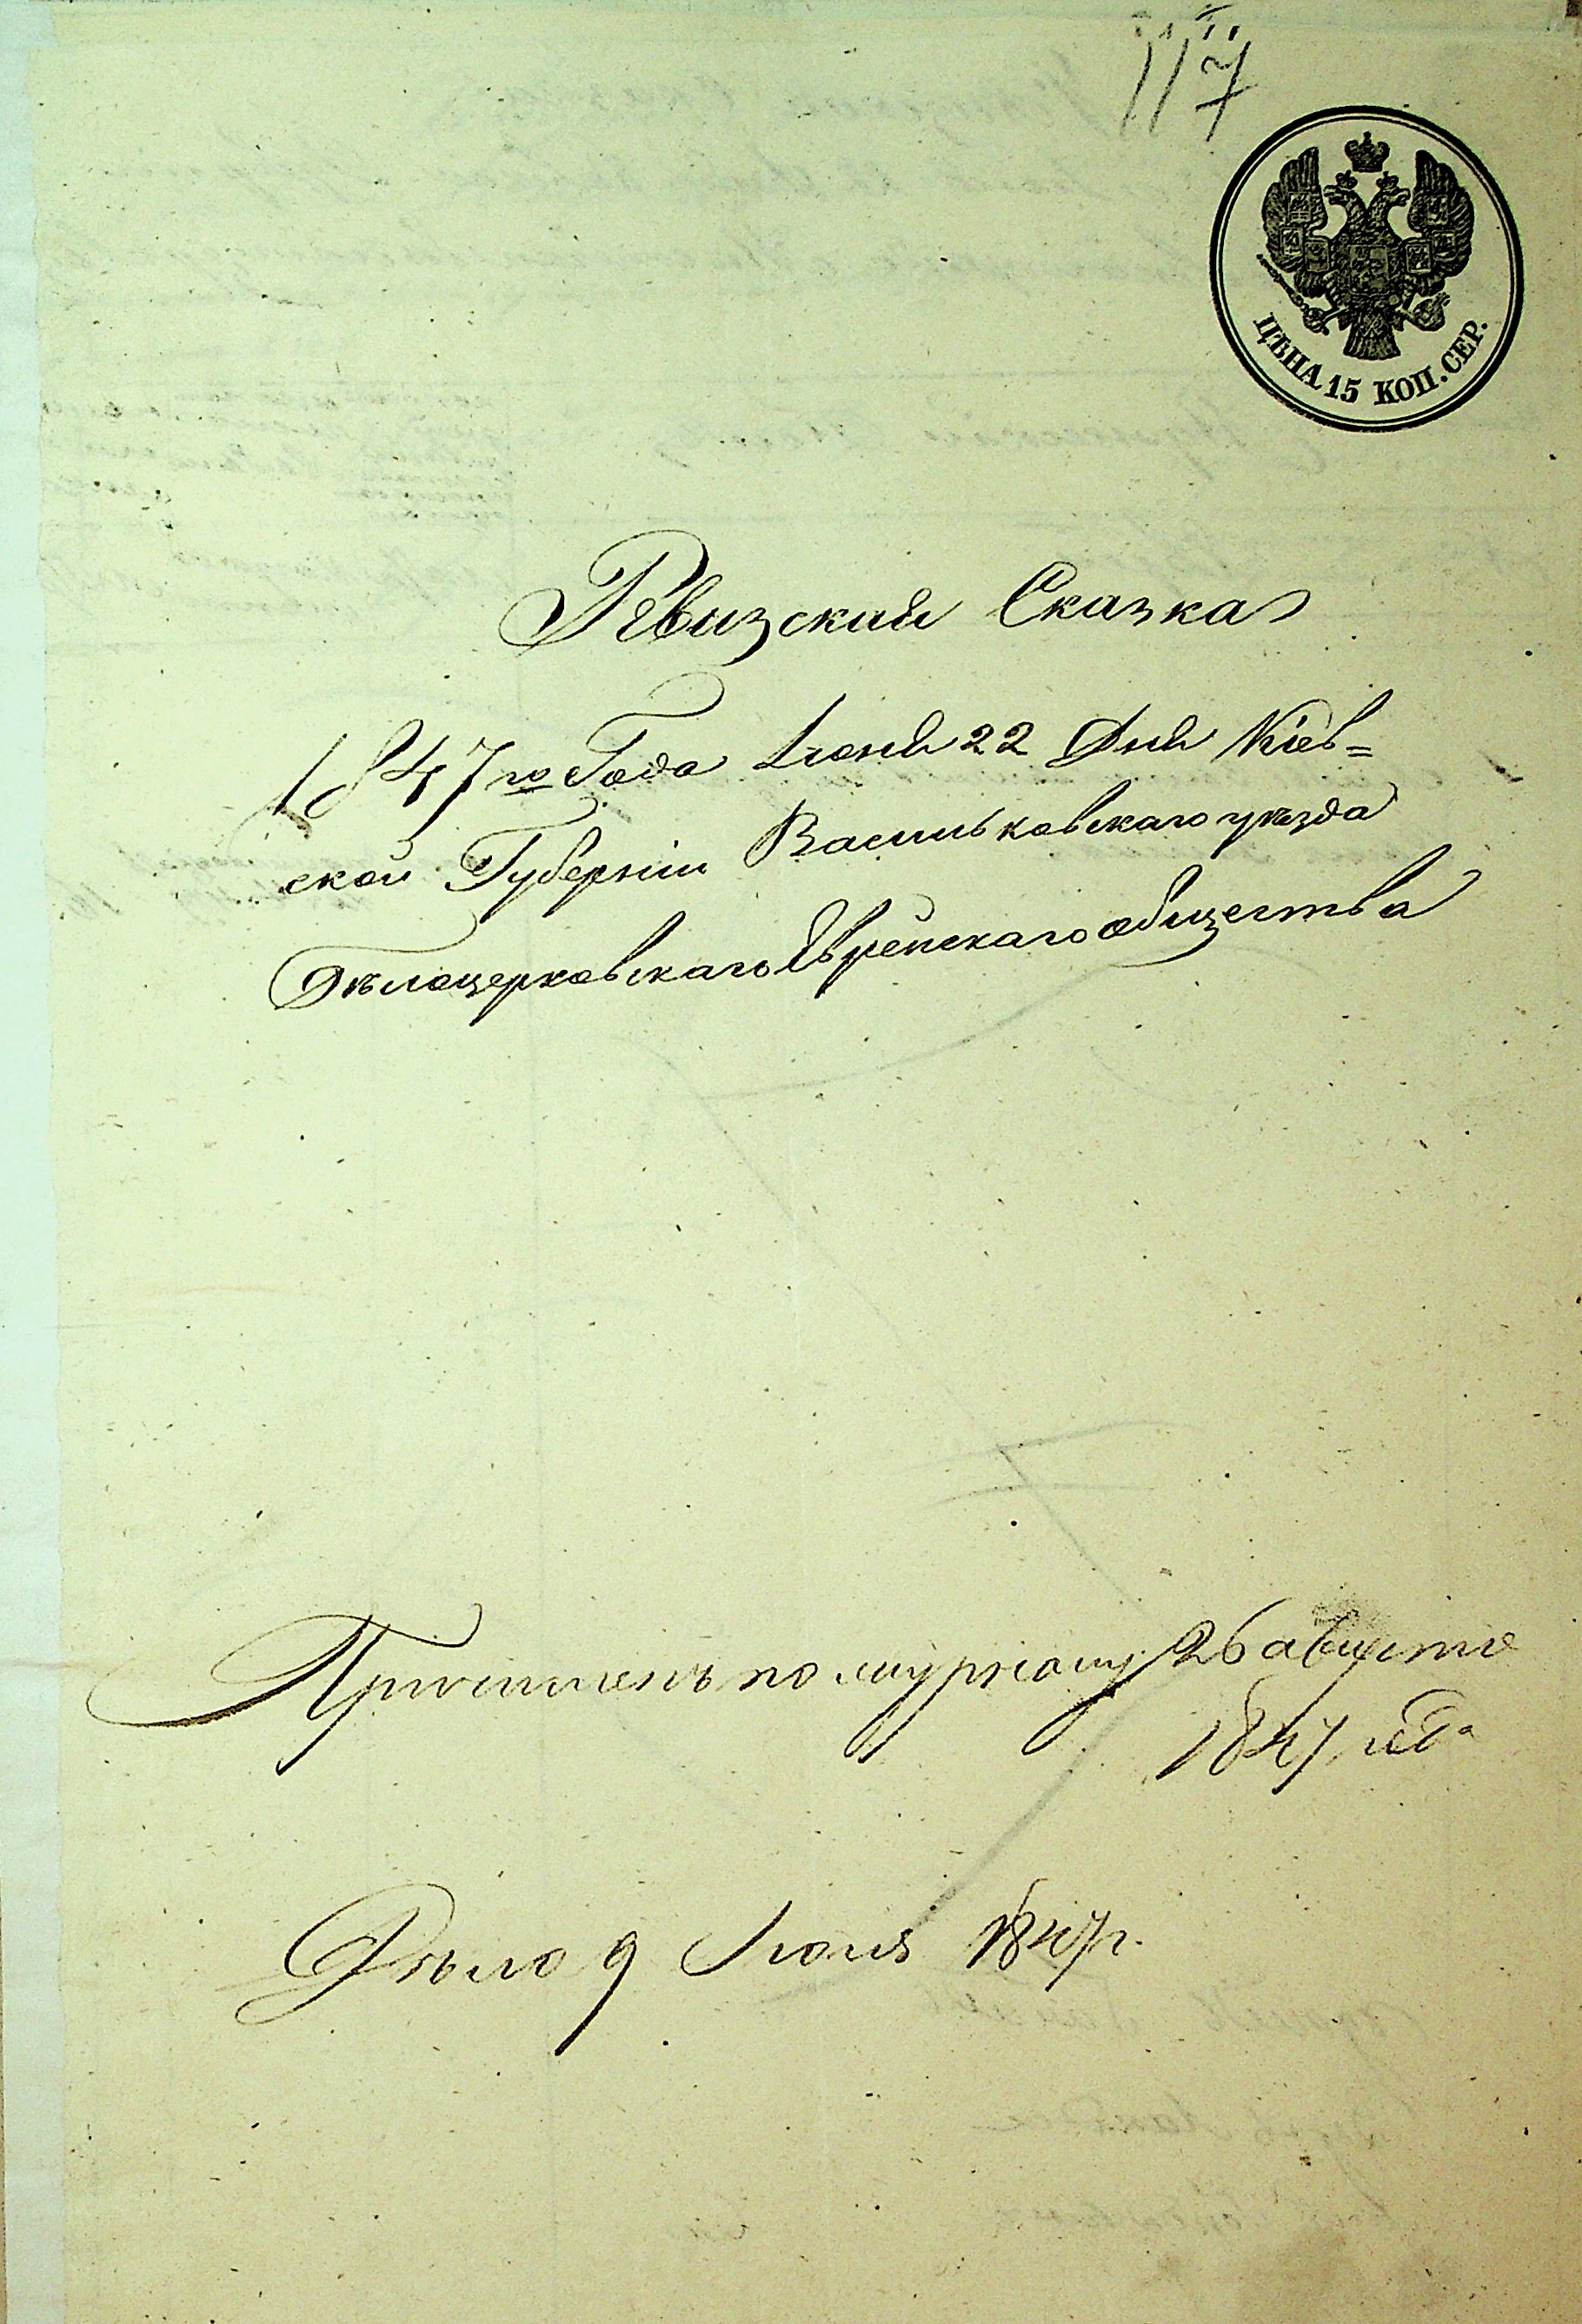 117
ЦѢНА 15 КОП. СЕР.
Ревизский Сказка
1847го Года Іюня 22 Дня Кіев=
ской Губерніи Васильковскаго уѣзда
Бѣлоцерковскаго Еврейскаго общества
по журналу 26 августа
1847 года
Дѣло 9 Іюля 1847 г.